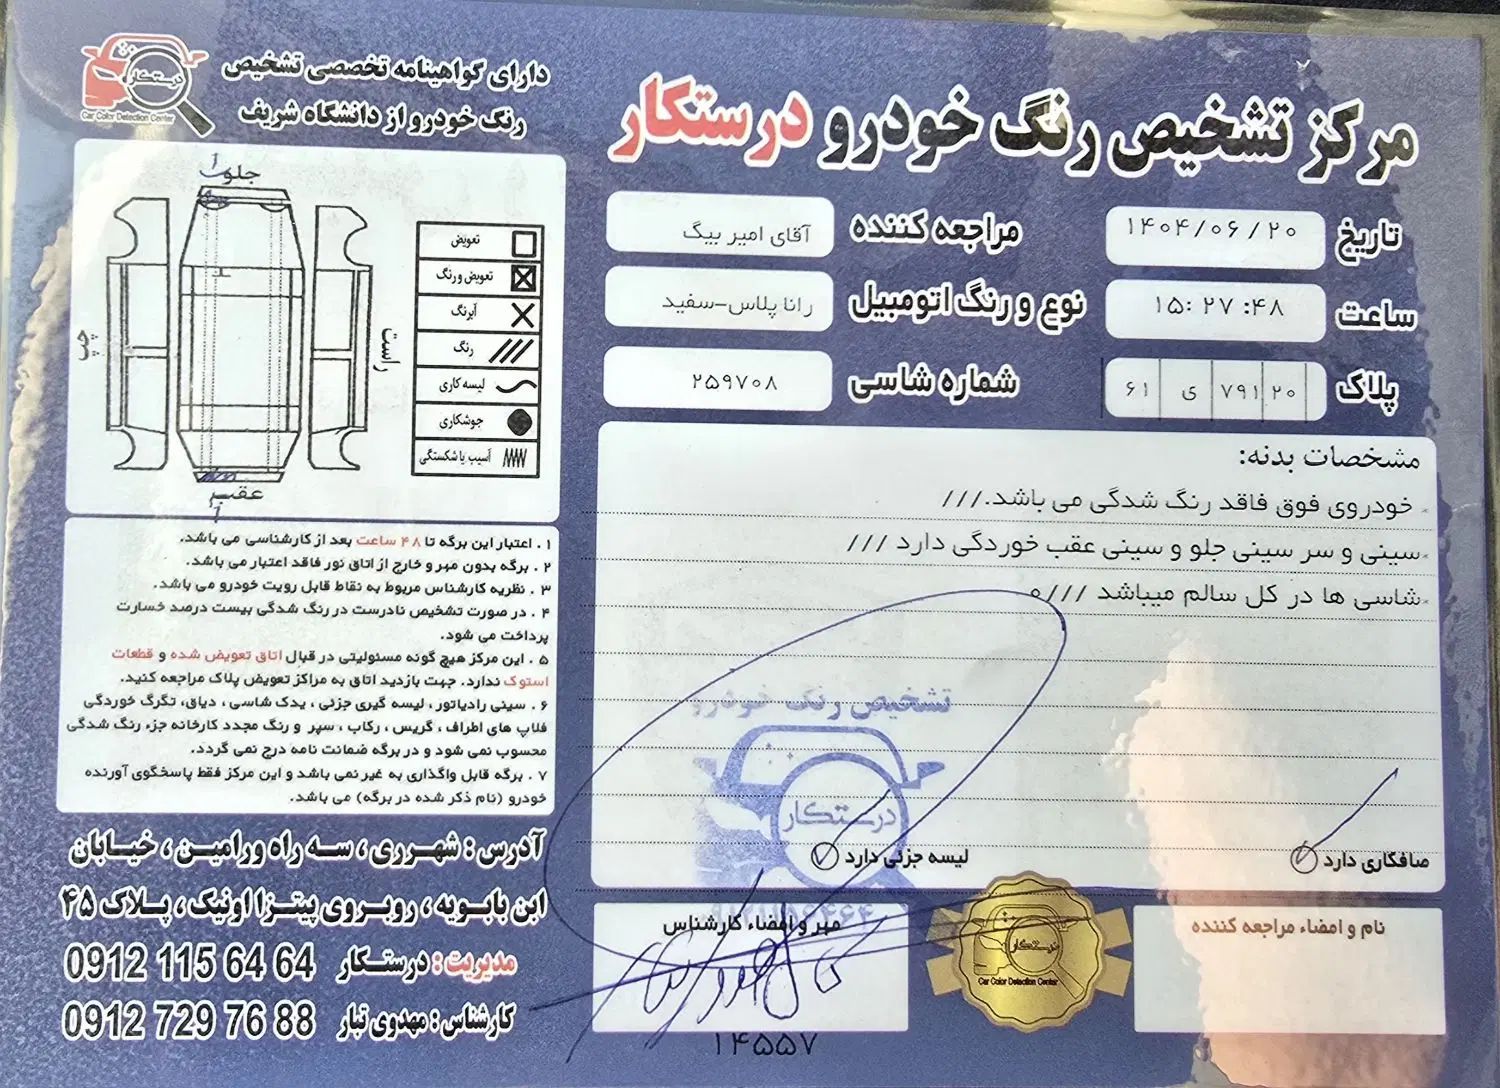 مرکز تشخیص رنگ خودرو درستکار
دارای گواهینامه تخصصی تشخیص
رنگ خودرو از دانشگاه شریف
درستکار
Car Color Detection Center
تاریخ ۱۴۰۴/۰۶/۲۰
مراجعه کننده آقای امیر بیگ
ساعت ۱۵: ۲۷ :۴۸
نوع و رنگ اتومبیل رانا پلاس-سفید
پلاک ۲۰ ۷۹۱ ی ۶۱
شماره شاسی ۲۵۹۷۰۸
مشخصات بدنه:
خودروی فوق فاقد رنگ شدگی می باشد.///
سینی و سر سینی جلو و سینی عقب خوردگی دارد ///
شاسی ها در کل سالم میباشد ///o
تشخیص رنگ خودرو
درستکار
صافکاری دارد
لیسه جزئی دارد
نام و امضاء مراجعه کننده
مهر و امضاء کارشناس
درستکار
Car Color Detection Center
۱۴۵۵۷
جلو
راست
چپ
عقب
تعویض
تعویض و رنگ
آبرنگ
رنگ
لیسه کاری
جوشکاری
آسیب یا شکستگی
۱. اعتبار این برگه تا ۴۸ ساعت بعد از کارشناسی می باشد.
۲. برگه بدون مهر و خارج از اتاق نور فاقد اعتبار می باشد.
۳. نظریه کارشناس مربوط به نقاط قابل رویت خودرو می باشد.
۴. در صورت تشخیص نادرست در رنگ شدگی بیست درصد خسارت
پرداخت می شود.
۵. این مرکز هیچ گونه مسئولیتی در قبال اتاق تعویض شده و قطعات
استوک ندارد. جهت بازدید اتاق به مراکز تعویض پلاک مراجعه کنید.
۶. سینی رادیاتور، لیسه گیری جزئی، یدک شاسی، دیاق، تگرگ خوردگی
فلاپ های اطراف، گریس، رکاب، سپر و رنگ مجدد کارخانه جزء رنگ شدگی
محسوب نمی شود و در برگه ضمانت نامه درج نمی گردد.
۷. برگه قابل واگذاری به غیر نمی باشد و این مرکز فقط پاسخگوی آورنده
خودرو (نام ذکر شده در برگه) می باشد.
آدرس: شهرری، سه راه ورامین، خیابان
ابن بابویه، روبروی پیتزا اونیک، پلاک ۴۵
مدیریت: درستکار 0912 115 64 64
کارشناس: مهدوی تبار 0912 729 76 88